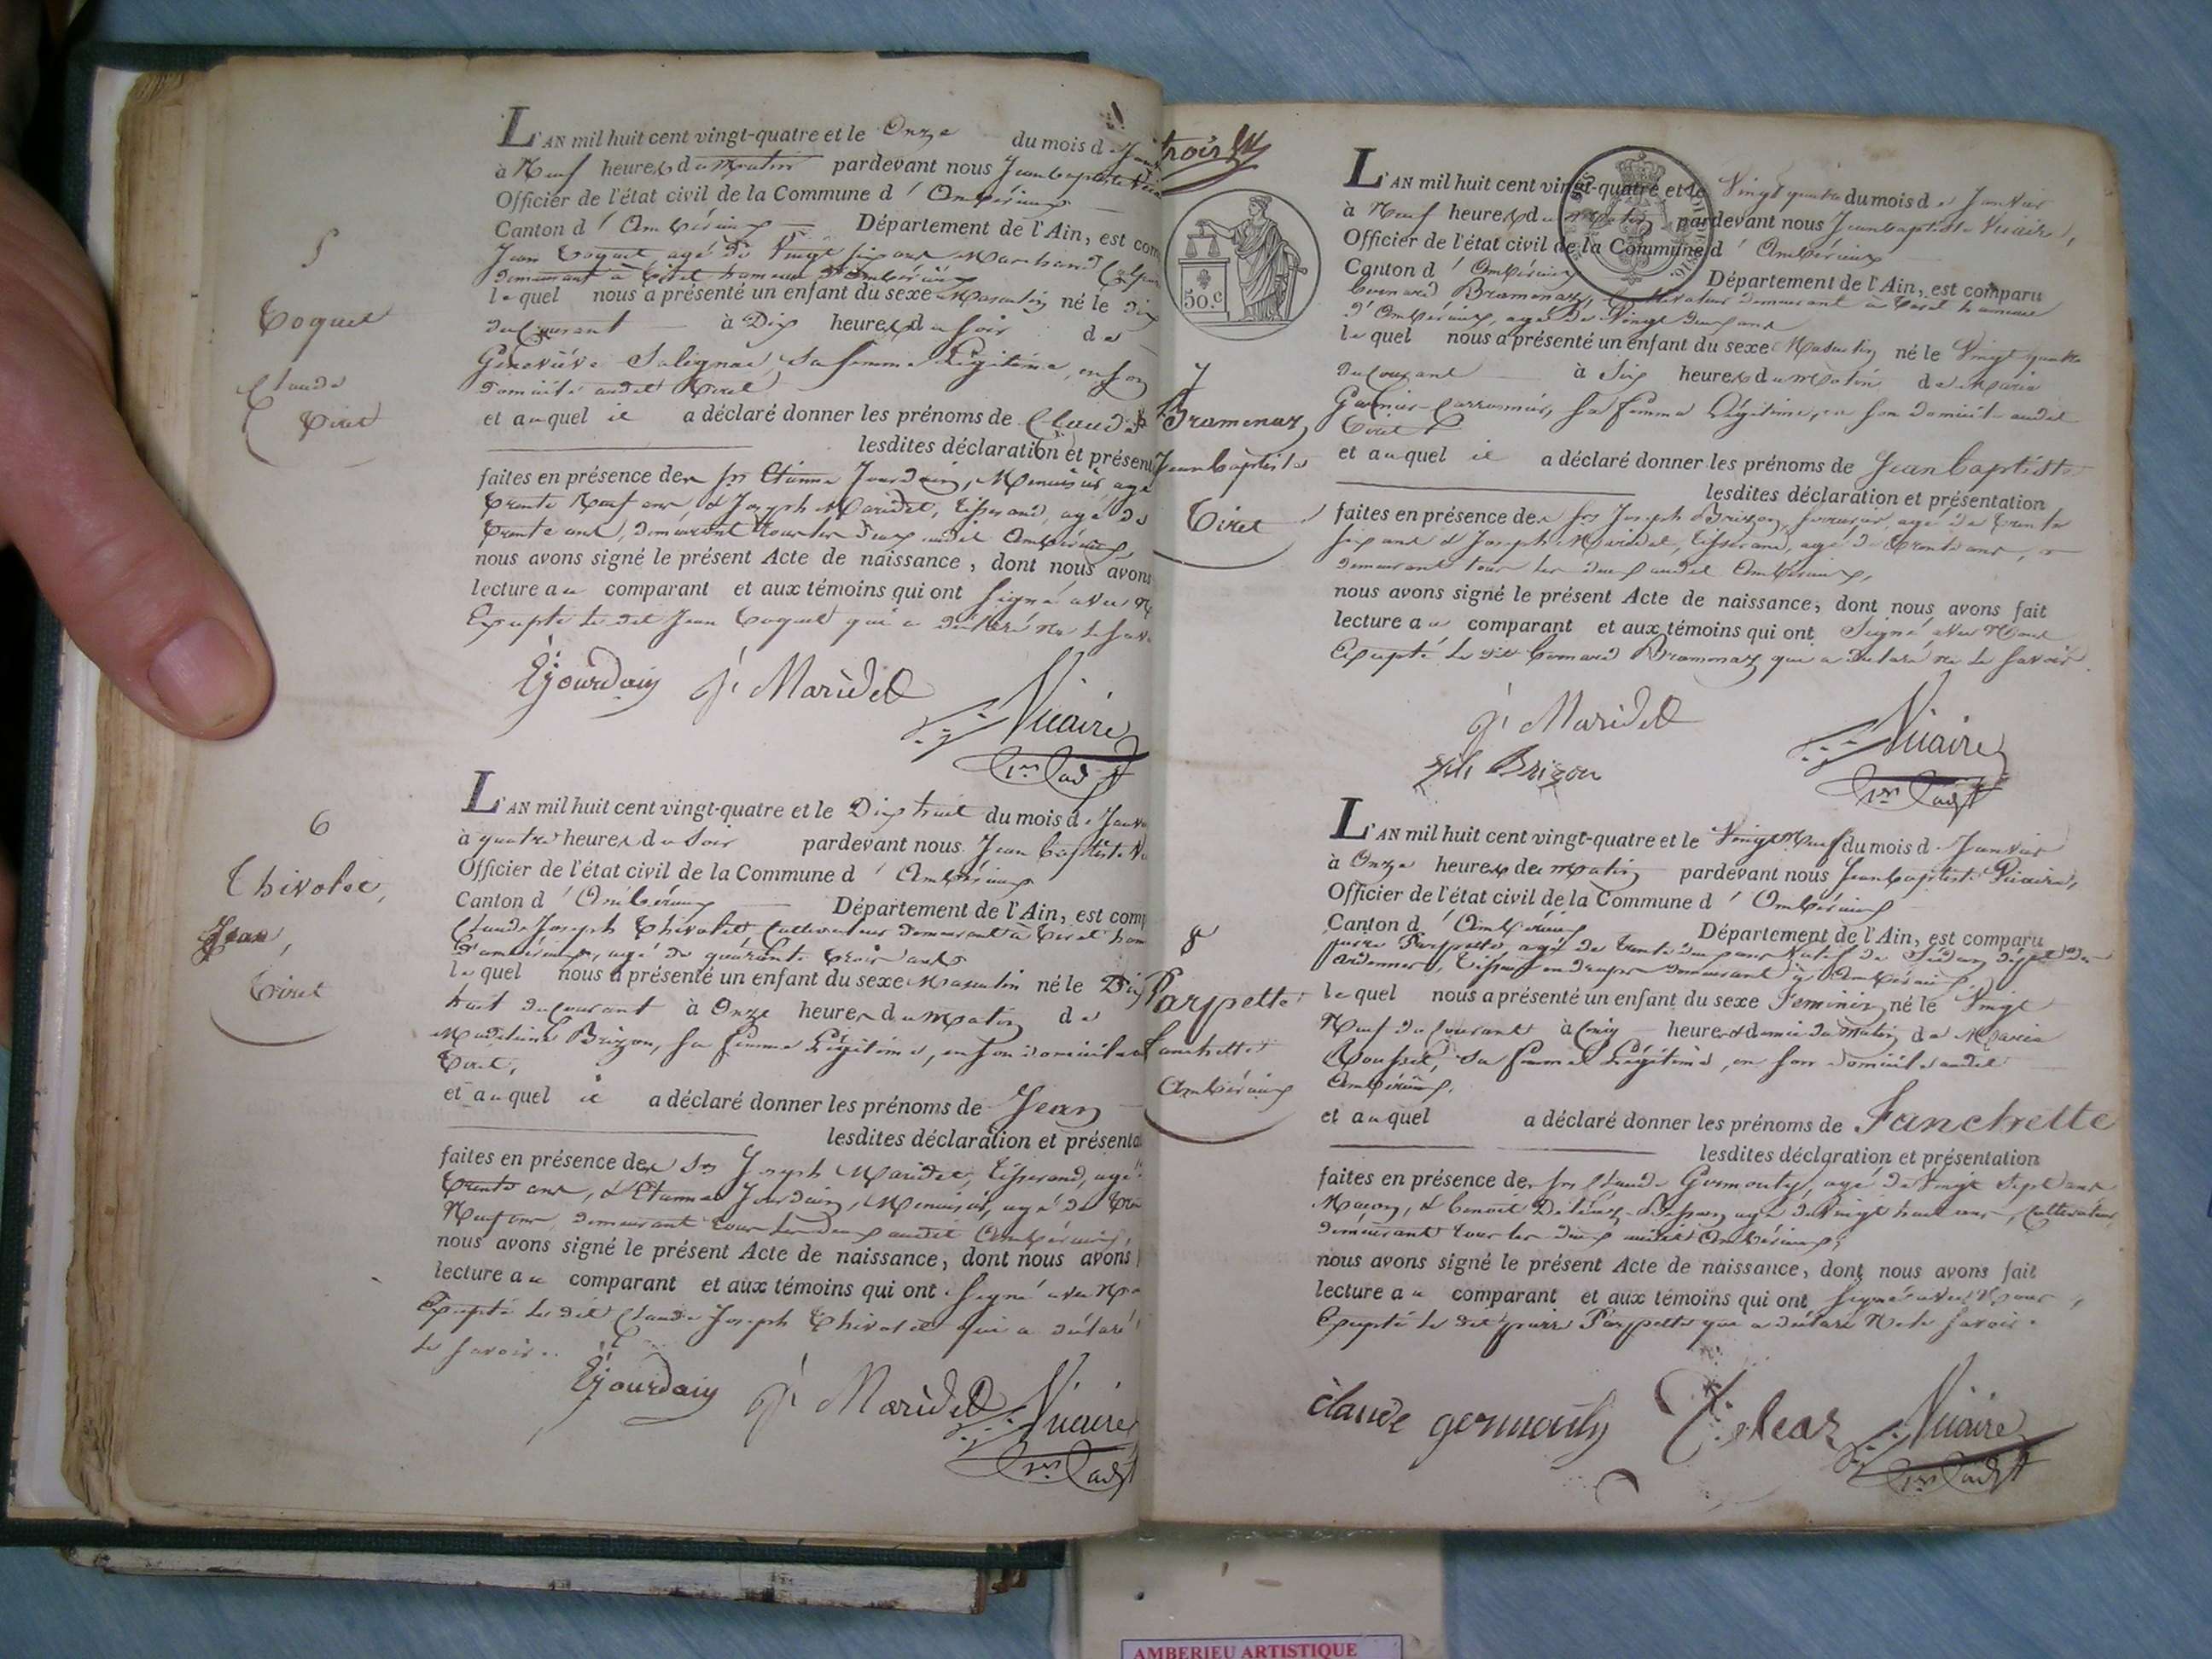 5
Coquet
Claude
Tiret
L'AN mil huit cent vingt-quatre et le Onze du mois de
à Neuf heures du Matin pardevant nous Jean baptiste
Officier de l'état civil de la Commune d'Ambérieux
Canton d'Ambérieux Département de l'Ain, est com
Jean Coquet, agé de Vingt six ans Marchand
demeurant à Tiret hameau d'Ambérieux
lequel nous a présenté un enfant du sexe Masculin né le dix
du Courant à Dix heures du soir de
Geneviève Salignat, sa femme Légitime, en son
domicile audit Tiret
et auquel il a déclaré donner les prénoms de Claude
lesdites déclaration et présent
faites en présence des Srs Etienne Jourdain, Menuisier, agé
trente Neuf ans & Joseph Maridet, tisserand, agé de
trente ans, demeurant tous les deux audit Ambérieux
nous avons signé le présent Acte de naissance, dont nous avons
lecture au comparant et aux témoins qui ont signé avec
Excepté le dit Jean Coquet qui a déclaré ne le
EJourdain J. Maridet
Vicaire
1er adjt
6
Thivolet,
Jean,
Tiret
L'AN mil huit cent vingt-quatre et le Dix huit du mois de Janv
à quatre heures du Soir pardevant nous Jean baptiste
Officier de l'état civil de la Commune d'Ambérieux
Canton d'Ambérieux Département de l'Ain, est comp
Claude Joseph Thivolet Cultivateur demeurant à Tiret ham
d'ambérieux, agé de quarante trois ans
lequel nous a présenté un enfant du sexe Masculin né le Dix
huit du courant à Onze heures du Matin de
Madelaine Brizon, sa femme Légitime, en son domicile
Tiret,
et auquel il a déclaré donner les prénoms de Jean
lesdites déclaration et présenta
faites en présence des Srs Joseph Maridet, tisserand, agé
trente ans, & Etienne Jourdain, Menuisier, agé de
Neuf ans demeurant tous les deux audit Ambérieux,
nous avons signé le présent Acte de naissance, dont nous avons
lecture au comparant et aux témoins qui ont signé avec
Excepté le dit Claude Joseph Thivolet qui a déclaré
le savoir.
EJourdain J. Maridet
Vicaire
1er adjt
trois
50.c
7
Bramenaz
Jean baptiste
Tiret
L'AN mil huit cent vingt-quatre et le Vingt quatre du mois de Janvier
à Neuf heures du Matin pardevant nous Jean baptiste Vicaire,
Officier de l'état civil de la Commune d'Ambérieux
Canton d'Ambérieux Département de l'Ain, est comparu
bernard Bramenaz, Cultivateur demeurant à Tiret hameau
d'Ambérieux, agé de Vingt deux ans
lequel nous a présenté un enfant du sexe Masculin né le Vingt quatre
du Courant à Six heures du Matin de Marie
sa femme Légitime, en son domicile audit
Tiret
et auquel il a déclaré donner les prénoms de Jean baptiste
lesdites déclaration et présentation
faites en présence des Srs Joseph Brizon, agé de trente
six ans & Joseph Maridet, tisserand, agé de trente ans,
demeurant tous les deux audit Ambérieux,
nous avons signé le présent Acte de naissance, dont nous avons fait
lecture au comparant et aux témoins qui ont Signé avec Nous
Excepté le dit bernard Bramenaz qui a déclaré ne le savoir.
J. Maridet
Brizon
Vicaire
1er adjt
8
Parpette
fanchette
Ambérieux
L'AN mil huit cent vingt-quatre et le Vingt Neuf du mois de Janvier
à Onze heures du Matin pardevant nous Jean baptiste Vicaire,
Officier de l'état civil de la Commune d'Ambérieux
Canton d'Ambérieux Département de l'Ain, est comparu
pierre Parpette agé de trente deux ans Natif de Sédan
ardennes, demeurant à Ambérieux,
lequel nous a présenté un enfant du sexe Feminin né le Vingt
Neuf du Courant à Cinq heures & demie du Matin de Marie
Rousset, sa femme Légitime, en son domicile audit
Ambérieux,
et auquel a déclaré donner les prénoms de Fanchette
lesdites déclaration et présentation
faites en présence des Srs Claude Germouty, agé de Vingt Sept ans
Maçon, & benoit agé de Vingt huit ans, Cultivateur,
demeurant tous les deux audit Ambérieux,
nous avons signé le présent Acte de naissance, dont nous avons fait
lecture au comparant et aux témoins qui ont signé avec Nous,
Excepté le dit pierre Parpette qui a déclaré Ne le savoir.
claude germouty
Vicaire
1er adjt
AMBERIEU ARTISTIQUE